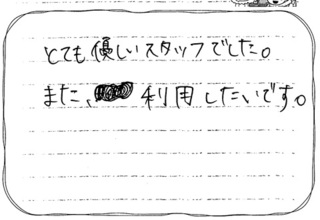 とても優しいスタッフでした。
また、利用したいです。